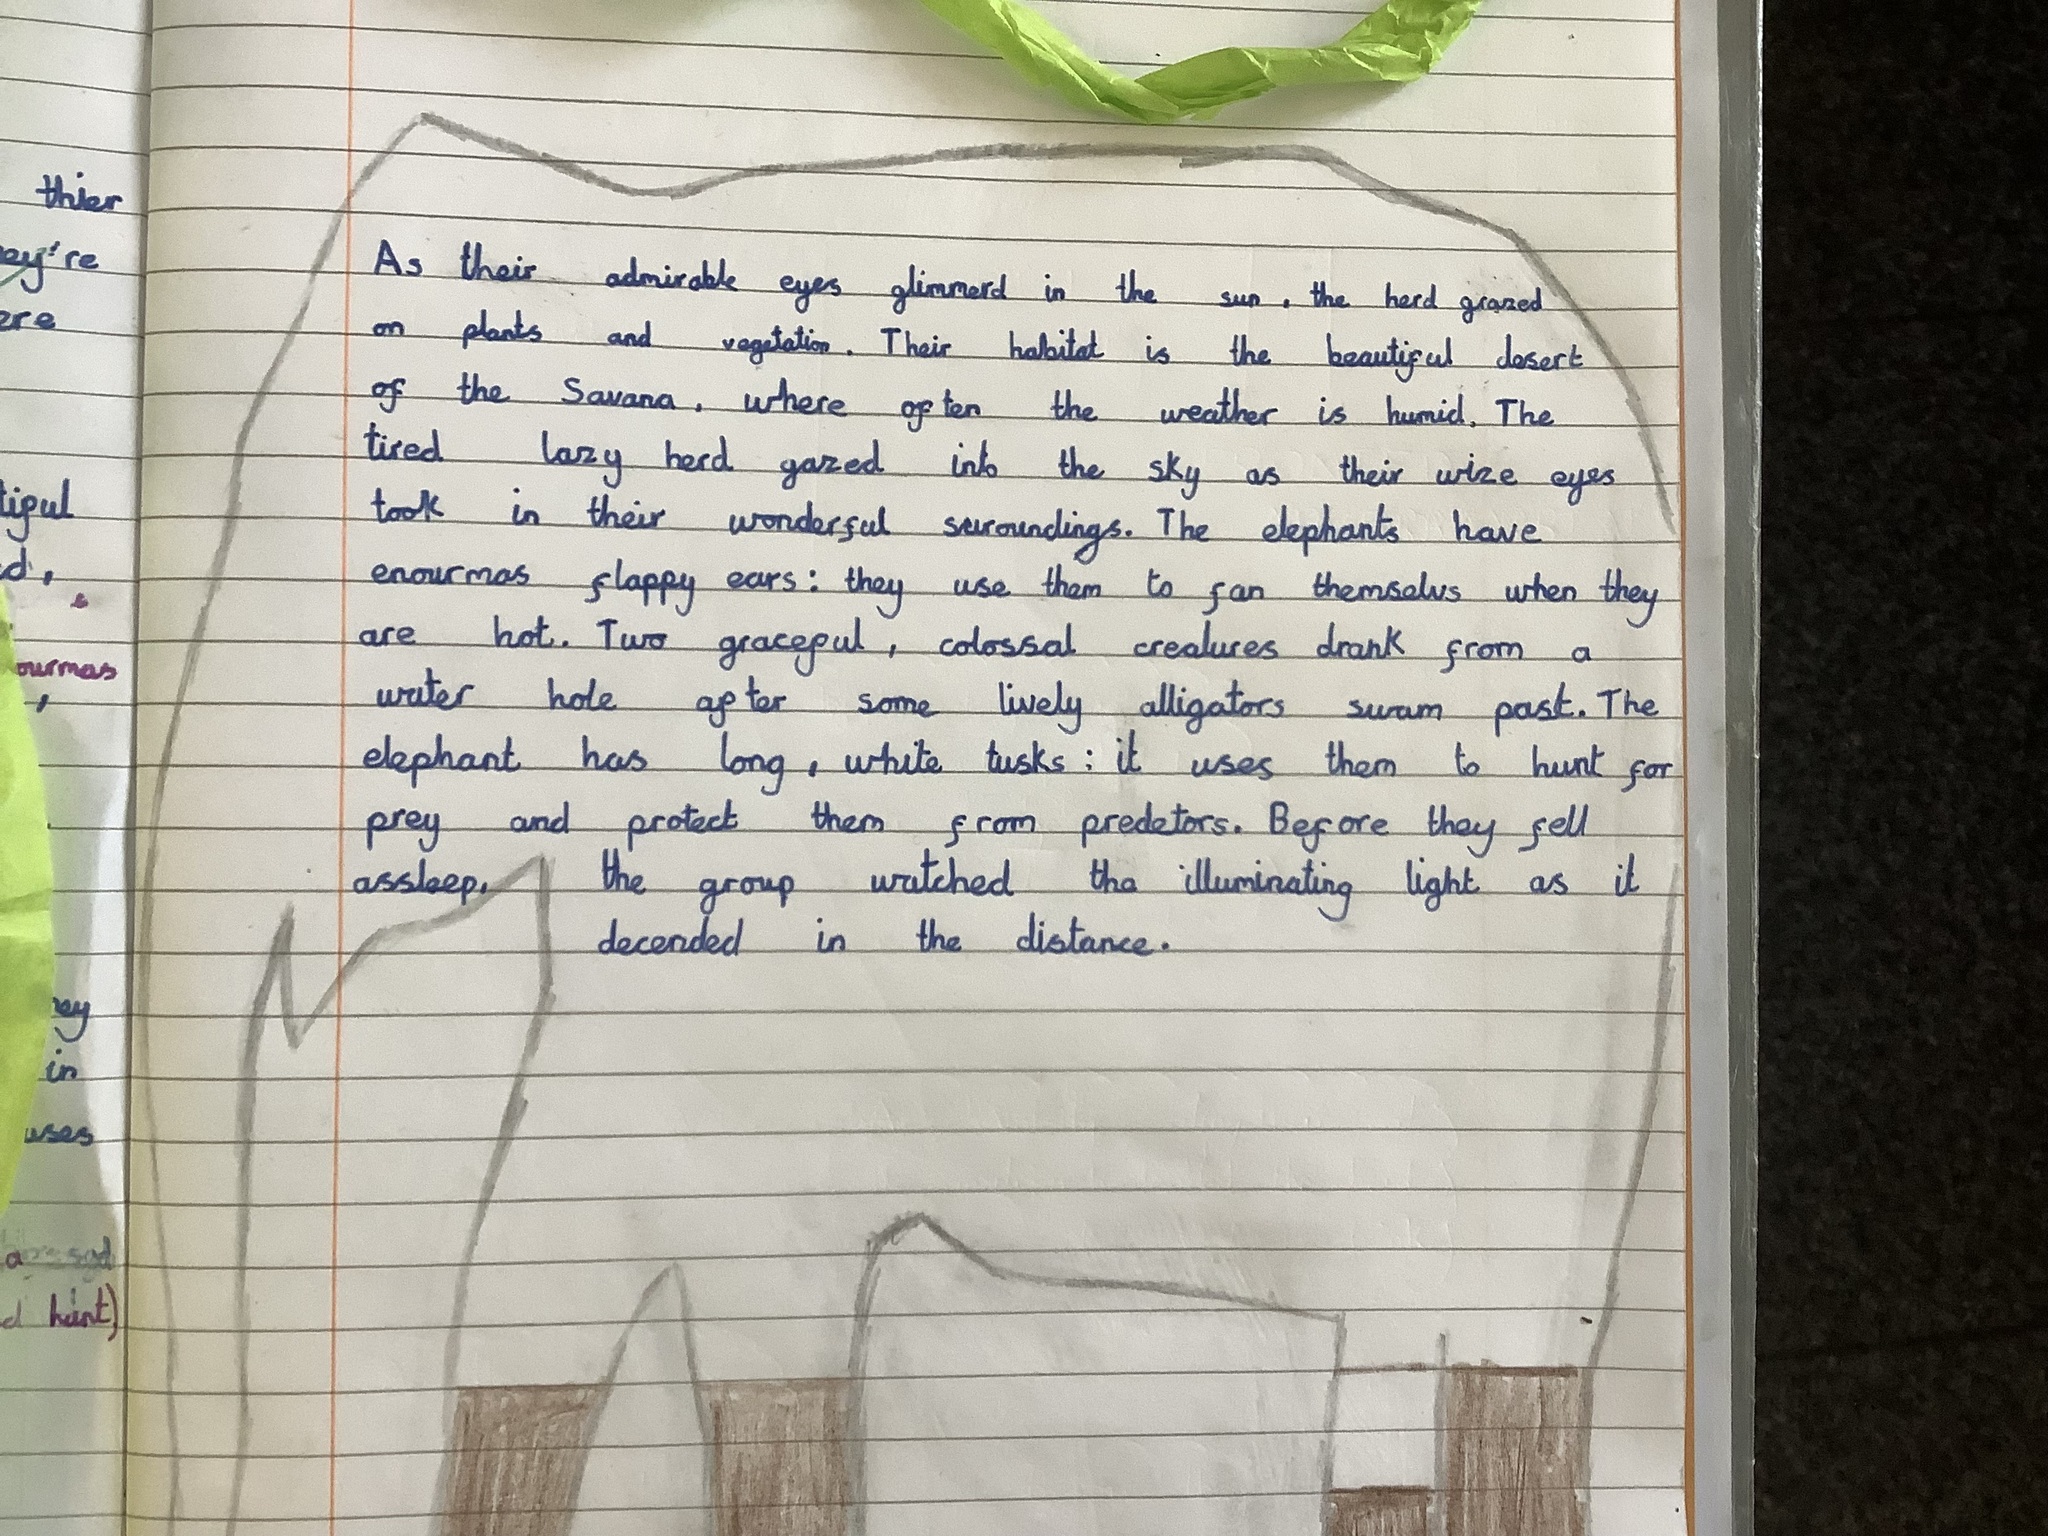 thier
ey're
ere
tiful
d,
ourmas
ey
in
uses
a
d hunt)
As their admirable eyes glimmerd in the sun, the herd grazed
on plants and vegetation. Their habitat is the beautiful desert
of the Savana, where often the weather is humid. The
tired lazy herd gazed into the sky as their wize eyes
took in their wonderful suroundings. The elephants have
enourmas flappy ears: they use them to fan themselvs when they
are hot. Two graceful, colossal creatures drank from a
water hole after some lively alligators swam past. The
elephant has long, white tusks: it uses them to hunt for
prey and protect them from predetors. Before they fell
assleep, the group watched the illuminating light as it
decended in the distance.